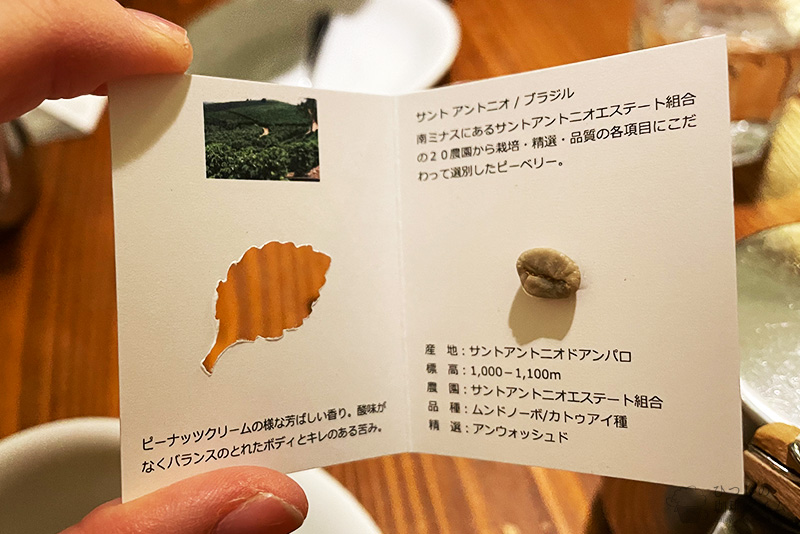 ピーナッツクリームの様な芳ばしい香り。酸味が
なくバランスのとれたボディとキレのある苦み。
サント アントニオ / ブラジル
南ミナスにあるサントアントニオエステート組合
の２０農園から栽培・精選・品質の各項目にこだ
わって選別したピーベリー。
産　地：サントアントニオドアンパロ
標　高：1,000－1,100m
農　園：サントアントニオエステート組合
品　種：ムンドノーボ/カトゥアイ種
精　選：アンウォッシュド